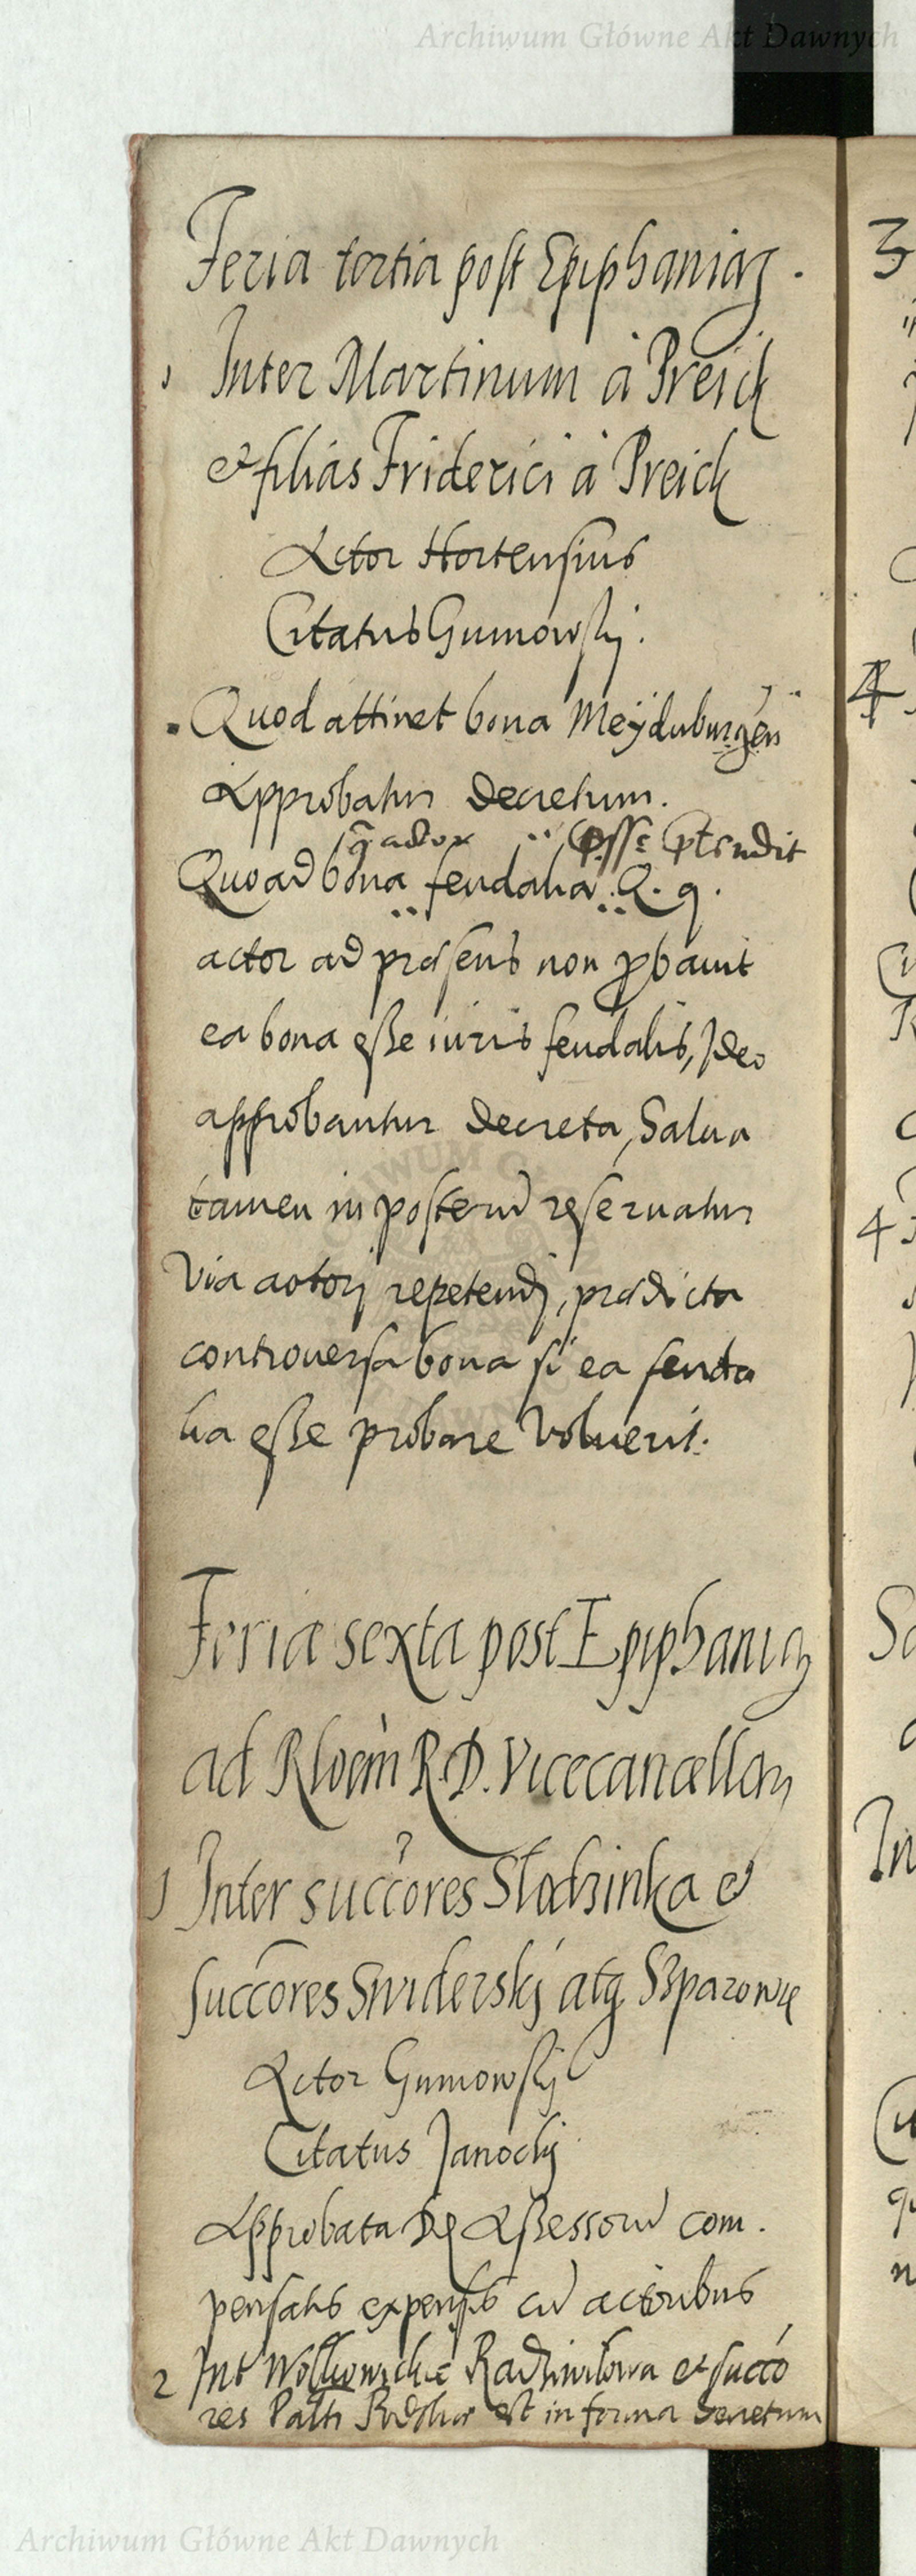 Archiwum Główne Akt Dawnych
Feria tertia post Epiphaniaꝝ.
1 Inter Martinum à Preick
et filias Friderici à Preick
Actor Hortensius
Citatus Gumowskj.
Quod attinet bona Meÿduburgen
Approbatur Decretum.
actor esse
Quoad bona feudalia Q. q.
actor ad præsens non ꝓbauit
ea bona esse iuris feudalis, Ideo
approbantur Decreta, Salua
tamen in posterū reseruatur
Via actorj repetendj, prædicta
controuersa bona si ea feuda
lia esse probare Voluerit.
Feria sexta post Epiphaniaꝝ
ad Rloem R.D. Vicecancellarÿ
1 Inter succores Slodzinka et
succores Swiderskj atq Szparowie
Actor Gumowskj
Citatus Janockj
Approbata Assessorū com.
pensatis expensis cū actoribus
2 Int Radziwilowa et succo
res est in forma Decretum
Archiwum Główne Akt Dawnych